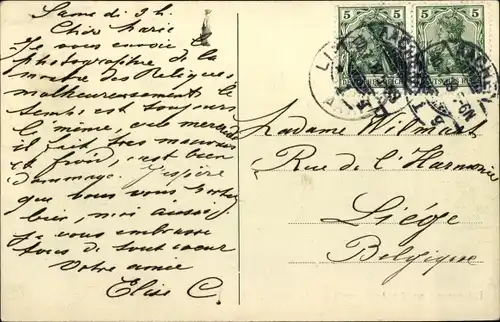 Samedi 3 h.
Chère Marie
Je vous envoie la
photographie de la
montre des Reliques,
malheureusement le
temps est toujours
le même, ce mercredi
il fait très mauvais
et froid, c'est bien
dommage. J'espère
que vous vous portez
bien, moi aussi,
Je vous embrasse
tous de tout coeur
Votre amie
Elise C.
5 5
5 5
DEUTSCHES REICH
Madame Wilmart
Rue de l'Harmonie
Liége
Belgique